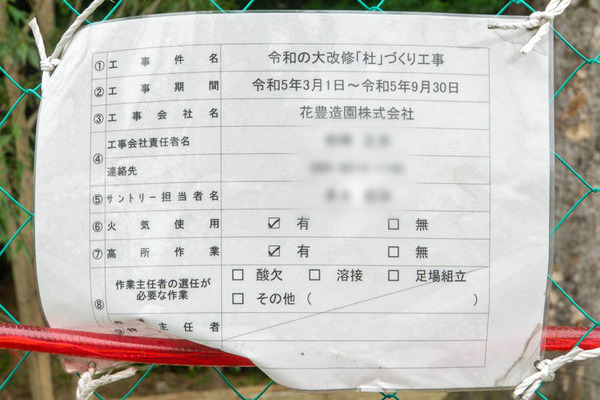 ① 工事件名 令和の大改修「杜」づくり工事
② 工事期間 令和5年3月1日～令和5年9月30日
③ 工事会社名 花豊造園株式会社
④ 工事会社責任者名
連絡先
⑤ サントリー担当者名
⑥ 火気使用 ☑ 有 □ 無
⑦ 高所作業 ☑ 有 □ 無
⑧ 作業主任者の選任が必要な作業 □ 酸欠 □ 溶接 □ 足場組立
□ その他（ ）
主任者